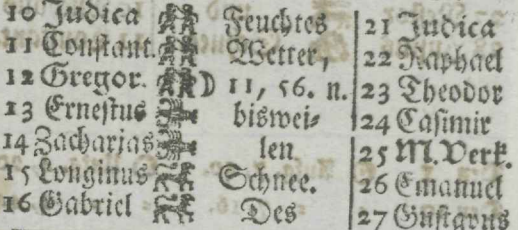 10 Judica Feuchtes 21 Judica
11 Constant. Wetter, 22 Raphael
12 Gregor. 11, 56. n. 23 Theodor
13 Ernestus biswei⸗ 24 Casimir
14 Zacharias len 25 M. Verk.
15 Longinus Schnee. 26 Emanuel
16 Gabriel Des 27 Gustavus